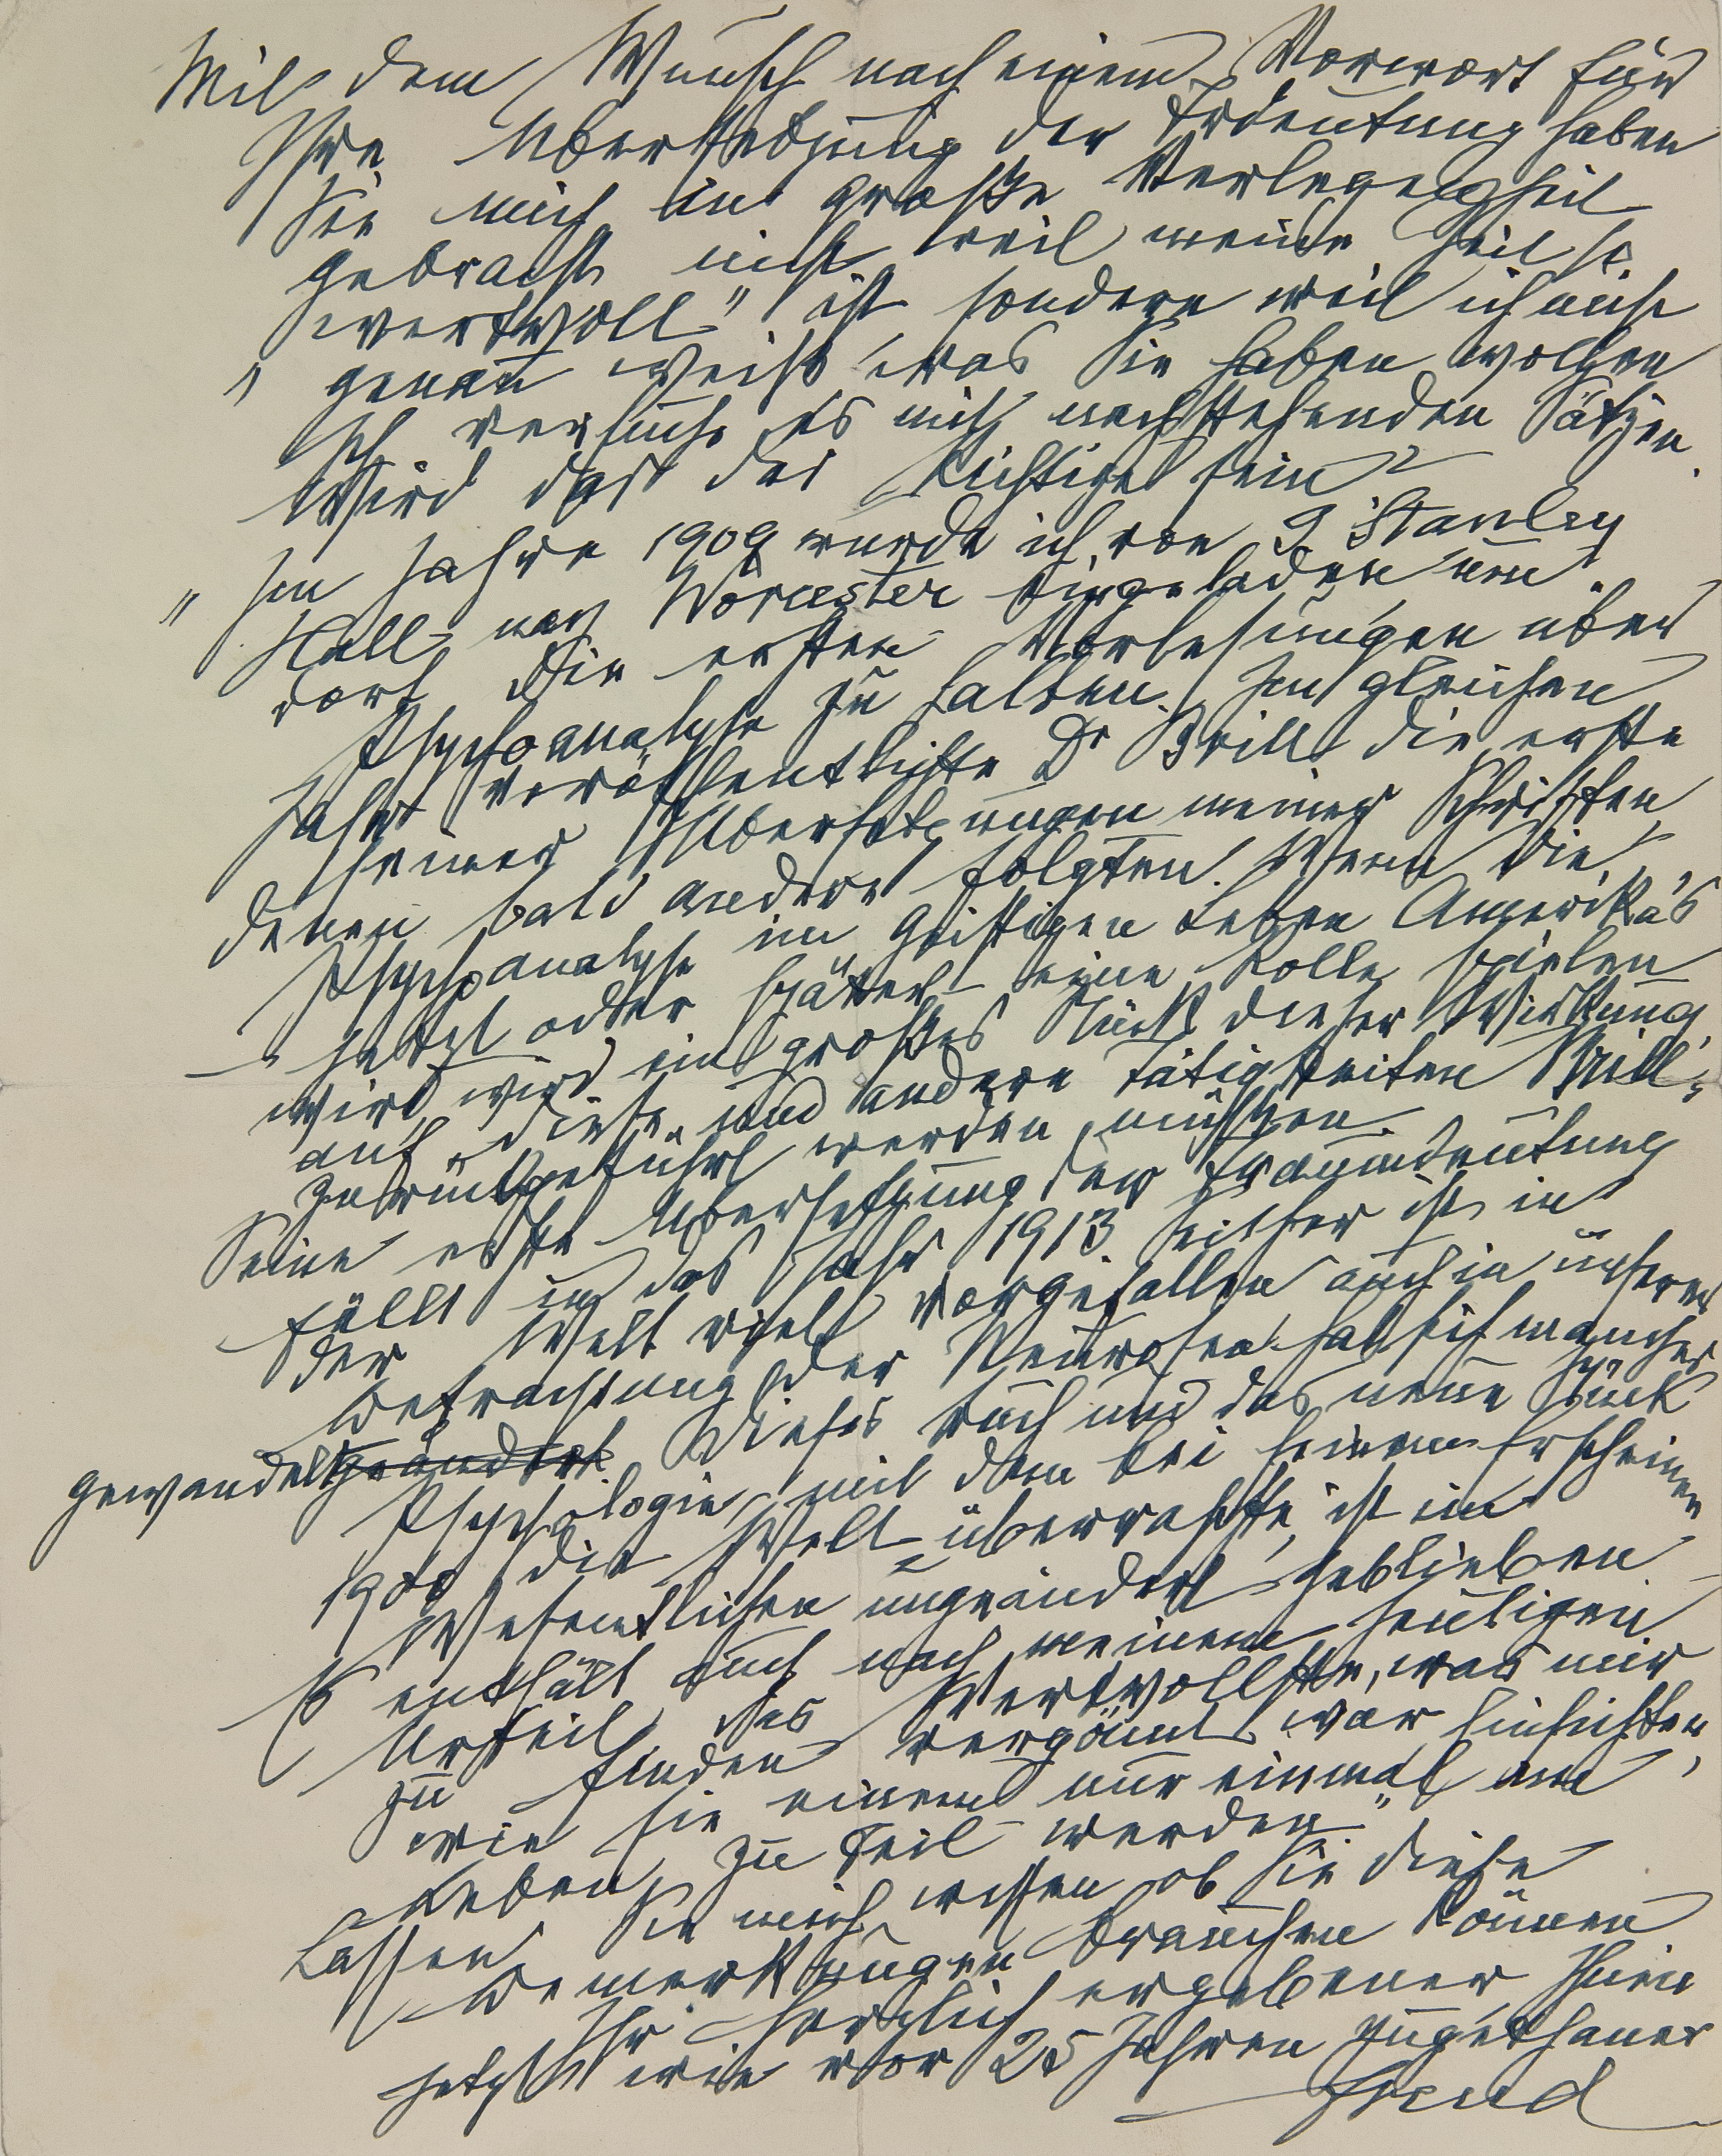 Mit dem Wunsch nach einem Vorwort für
Ihre Übersetzung der Trdeutung haben
Sie mich in große Verlegenheit
gebracht nicht weil meine Zeit so
wertvoll" ist sondern weil ich nicht
" genau weiß was Sie haben wollen
Ich versuche es mit nachstehenden Sätzen.
Wird das das Richtige sein?
" Im Jahre 1909 wurde ich von G Stanley
Hall nach Worcester eingeladen um
dort die ersten Vorlesungen über
Psychoanalyse zu halten. Im gleichen
Jahr veröffentlichte Dr Brill die erste
seiner Übersetzungen meiner Schriften,
denen bald andere folgten. Wenn die
Psychoanalyse im geistigen Leben Amerika's
jetzt oder später eine Rolle spielen
wird, wird ein großes Stück dieser Wirkung
auf diese und andere Tätigkeiten Brill's
zurückgeführt werden müssen.
Seine erste Übersetzung der Traumdeutung
fällt in das Jahr 1913. Seither ist in
der Welt viel vorgefallen auch in unserer
Betrachtung der Neurosen hat sich manches
gewandelt geändert. Dieses Buch und das neue Stück
Psychologie, mit dem bei seinem Erscheinen
1900 die Welt überraschte, ist im
Wesentlichen ungeändert geblieben
Es enthält auch nach meinem heutigen
Urteil das Wertvollste, was mir
zu finden vergönnt war. Einsichten,
wie sie einem nur einmal im
Leben zu Teil werden"
Lassen Sie mich wissen ob Sie diese
Bemerkungen brauchen können
Ihr herzlich ergebener Ihnen
jetzt wie vor 25 Jahren zugethaner
Freud